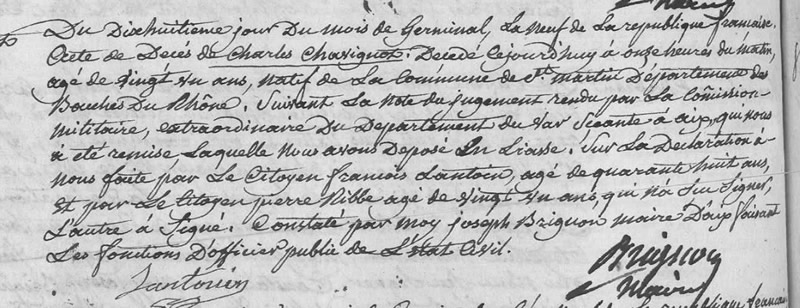 Du Dixhuitieme jour Du mois de Germinal, La Neuf de La republique francaise.
Acte de Decés de Charles Chavignot. Decedé Cejourdhuy à onze heures du matin,
agé de vingt un ans, natif de La Commune de St. martin Departement des
Bouches Du Rhône. Suivant La Note du Jugement rendu par La Com̃ission
militaire, extraordinaire Du Departement du Var Séante à aix, qui nous
à eté remise, Laquelle Nous avons Deposé En Liasse. Sur La Declaration à
nous faite par Le Citoyen francois Lantoin, agé de quarante huit ans,
et par Le Citoyen pierre Ribbe agé de vingt un ans, qui n'a Sçu Signer,
L'autre à Signé. Constaté par moy joseph Brignon maire D'aix faisant
Les fonctions D'officier public de L'état Civil.
Lantouin
Brignon
maire